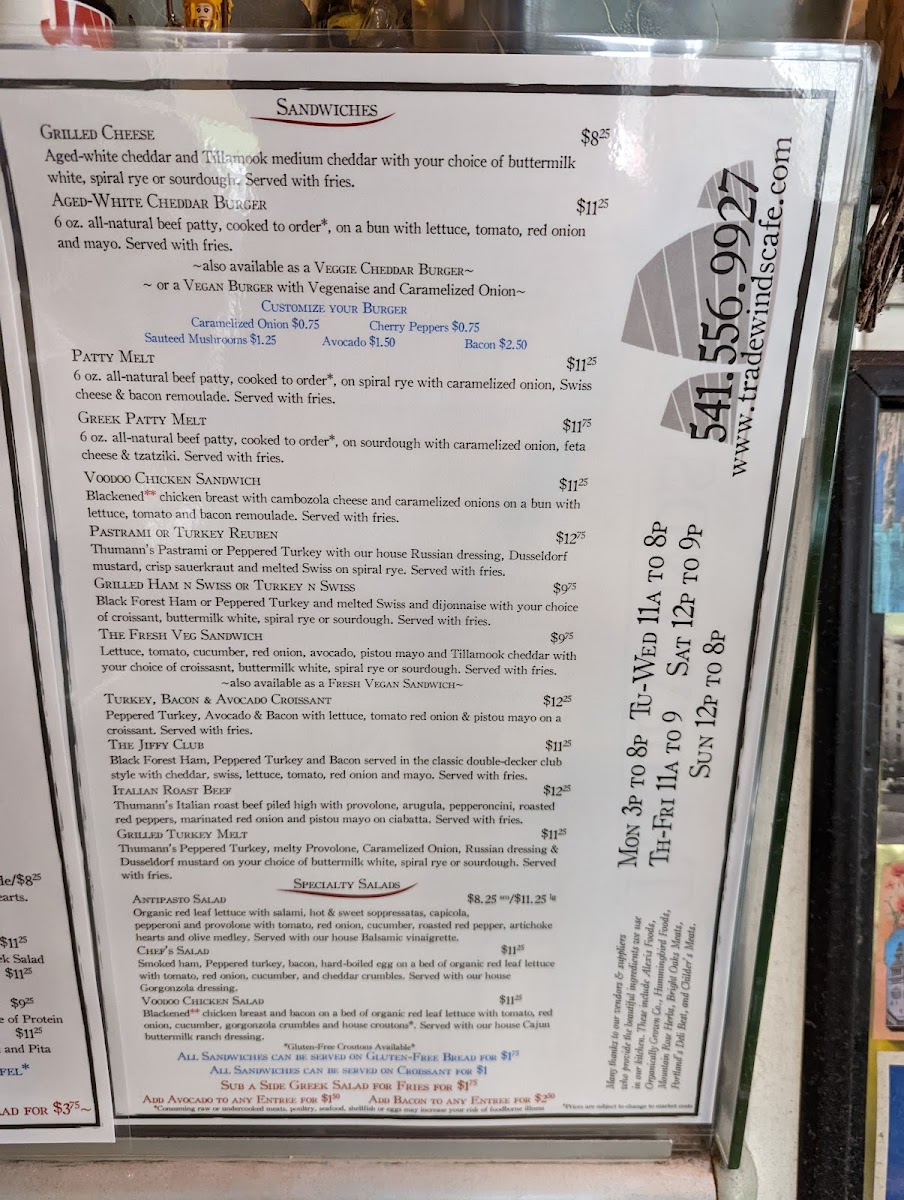 JAW
SANDWICHES
GRILLED CHEESE $8.25
Aged-white cheddar and Tillamook medium cheddar with your choice of buttermilk
white, spiral rye or sourdough. Served with fries.
AGED-WHITE CHEDDAR BURGER $11.25
6 oz. all-natural beef patty, cooked to order*, on a bun with lettuce, tomato, red onion
and mayo. Served with fries.
~also available as a VEGGIE CHEDDAR BURGER~
~ or a VEGAN BURGER with Vegenaise and Caramelized Onion~
CUSTOMIZE YOUR BURGER
Caramelized Onion $0.75 Cherry Peppers $0.75
Sauteed Mushrooms $1.25 Avocado $1.50 Bacon $2.50
PATTY MELT $11.25
6 oz. all-natural beef patty, cooked to order*, on spiral rye with caramelized onion, Swiss
cheese & bacon remoulade. Served with fries.
GREEK PATTY MELT $11.75
6 oz. all-natural beef patty, cooked to order*, on sourdough with caramelized onion, feta
cheese & tzatziki. Served with fries.
VOODOO CHICKEN SANDWICH $11.25
Blackened** chicken breast with cambozola cheese and caramelized onions on a bun with
lettuce, tomato and bacon remoulade. Served with fries.
PASTRAMI OR TURKEY REUBEN $12.75
Thumann's Pastrami or Peppered Turkey with our house Russian dressing, Dusseldorf
mustard, crisp sauerkraut and melted Swiss on spiral rye. Served with fries.
GRILLED HAM N SWISS OR TURKEY N SWISS $9.75
Black Forest Ham or Peppered Turkey and melted Swiss and dijonnaise with your choice
of croissant, buttermilk white, spiral rye or sourdough. Served with fries.
THE FRESH VEG SANDWICH $9.75
Lettuce, tomato, cucumber, red onion, avocado, pistou mayo and Tillamook cheddar with
your choice of croissasnt, buttermilk white, spiral rye or sourdough. Served with fries.
~also available as a FRESH VEGAN SANDWICH~
TURKEY, BACON & AVOCADO CROISSANT $12.25
Peppered Turkey, Avocado & Bacon with lettuce, tomato red onion & pistou mayo on a
croissant. Served with fries.
THE JIFFY CLUB $11.25
Black Forest Ham, Peppered Turkey and Bacon served in the classic double-decker club
style with cheddar, swiss, lettuce, tomato, red onion and mayo. Served with fries.
ITALIAN ROAST BEEF $12.25
Thumann's Italian roast beef piled high with provolone, arugula, pepperoncini, roasted
red peppers, marinated red onion and pistou mayo on ciabatta. Served with fries.
GRILLED TURKEY MELT $11.25
Thumann's Peppered Turkey, melty Provolone, Caramelized Onion, Russian dressing &
Dusseldorf mustard on your choice of buttermilk white, spiral rye or sourdough. Served
with fries.
SPECIALTY SALADS
ANTIPASTO SALAD $8.25 sm/$11.25 lg
Organic red leaf lettuce with salami, hot & sweet soppressatas, capicola,
pepperoni and provolone with tomato, red onion, cucumber, roasted red pepper, artichoke
hearts and olive medley. Served with our house Balsamic vinaigrette.
CHEF'S SALAD $11.25
Smoked ham, Peppered turkey, bacon, hard-boiled egg on a bed of organic red leaf lettuce
with tomato, red onion, cucumber, and cheddar crumbles. Served with our house
Gorgonzola dressing.
VOODOO CHICKEN SALAD $11.25
Blackened** chicken breast and bacon on a bed of organic red leaf lettuce with tomato, red
onion, cucumber, gorgonzola crumbles and house croutons*. Served with our house Cajun
buttermilk ranch dressing.
*Gluten-Free Croutons Available*
ALL SANDWICHES CAN BE SERVED ON GLUTEN-FREE BREAD FOR $1.75
ALL SANDWICHES CAN BE SERVED ON CROISSANT FOR $1
SUB A SIDE GREEK SALAD FOR FRIES FOR $1.75
ADD AVOCADO TO ANY ENTREE FOR $1.50 ADD BACON TO ANY ENTREE FOR $2.50
*Consuming raw or undercooked meats, poultry, seafood, shellfish or eggs may increase your risk of foodborne illness *Prices are subject to change to market costs
541.556.9927
www.tradewindscafe.com
MON 3P TO 8P TU-WED 11A TO 8P
TH-FRI 11A TO 9 SAT 12P TO 9P
SUN 12P TO 8P
Many thanks to our vendors & suppliers
who provide the beautiful ingredients we use
in our kitchen. These include Alexis Foods,
Organically Grown Co., Hummingbird Foods,
Mountain Rose Herbs, Bright Oaks Meats,
Portland's Deli Best, and Childer's Meats.
le/$8.25
earts.
$11.25
ek Salad
$11.25
$9.25
e of Protein
$11.25
and Pita
FEL*
AD FOR $3.75~